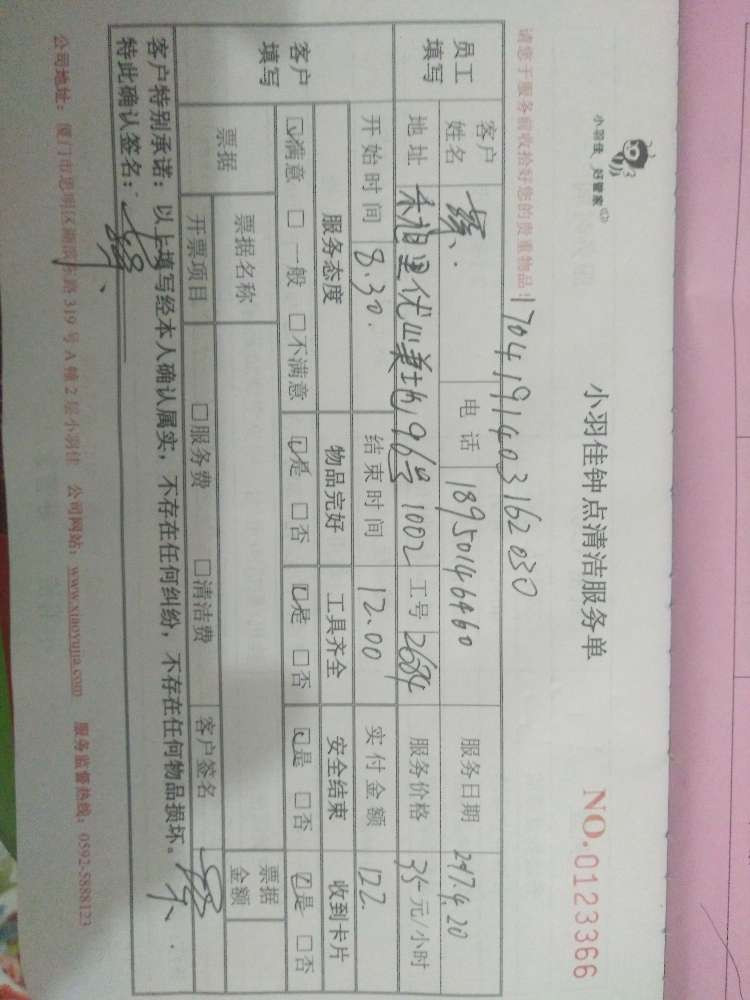 小羽佳 好管家
小羽佳钟点清洁服务单
NO.0123366
请您于服务前收拾好您的贵重物品！
1704191403162030
员工填写
客户姓名
电话 18950146460
服务日期 2017.4.20
地址 禾祥里优山美地196号1002
工号 2684
服务价格 35元/小时
开始时间 8.30.
结束时间 12.00
实付金额 122.
客户填写
服务态度 物品完好 工具齐全 安全结束 收到卡片
☑满意 □一般 □不满意 ☑是 □否 ☑是 □否 ☑是 □否 ☑是 □否
票据 票据名称 票据金额
开票项目 □服务费 □清洁费 客户签名
客户特别承诺：以上填写经本人确认属实，不存在任何纠纷，不存在任何物品损坏。
特此确认签名：
公司地址：厦门市思明区湖滨东路319号A幢2层小羽佳 公司网站：www.xiaoyujia.com 服务监督热线：0592-5888123